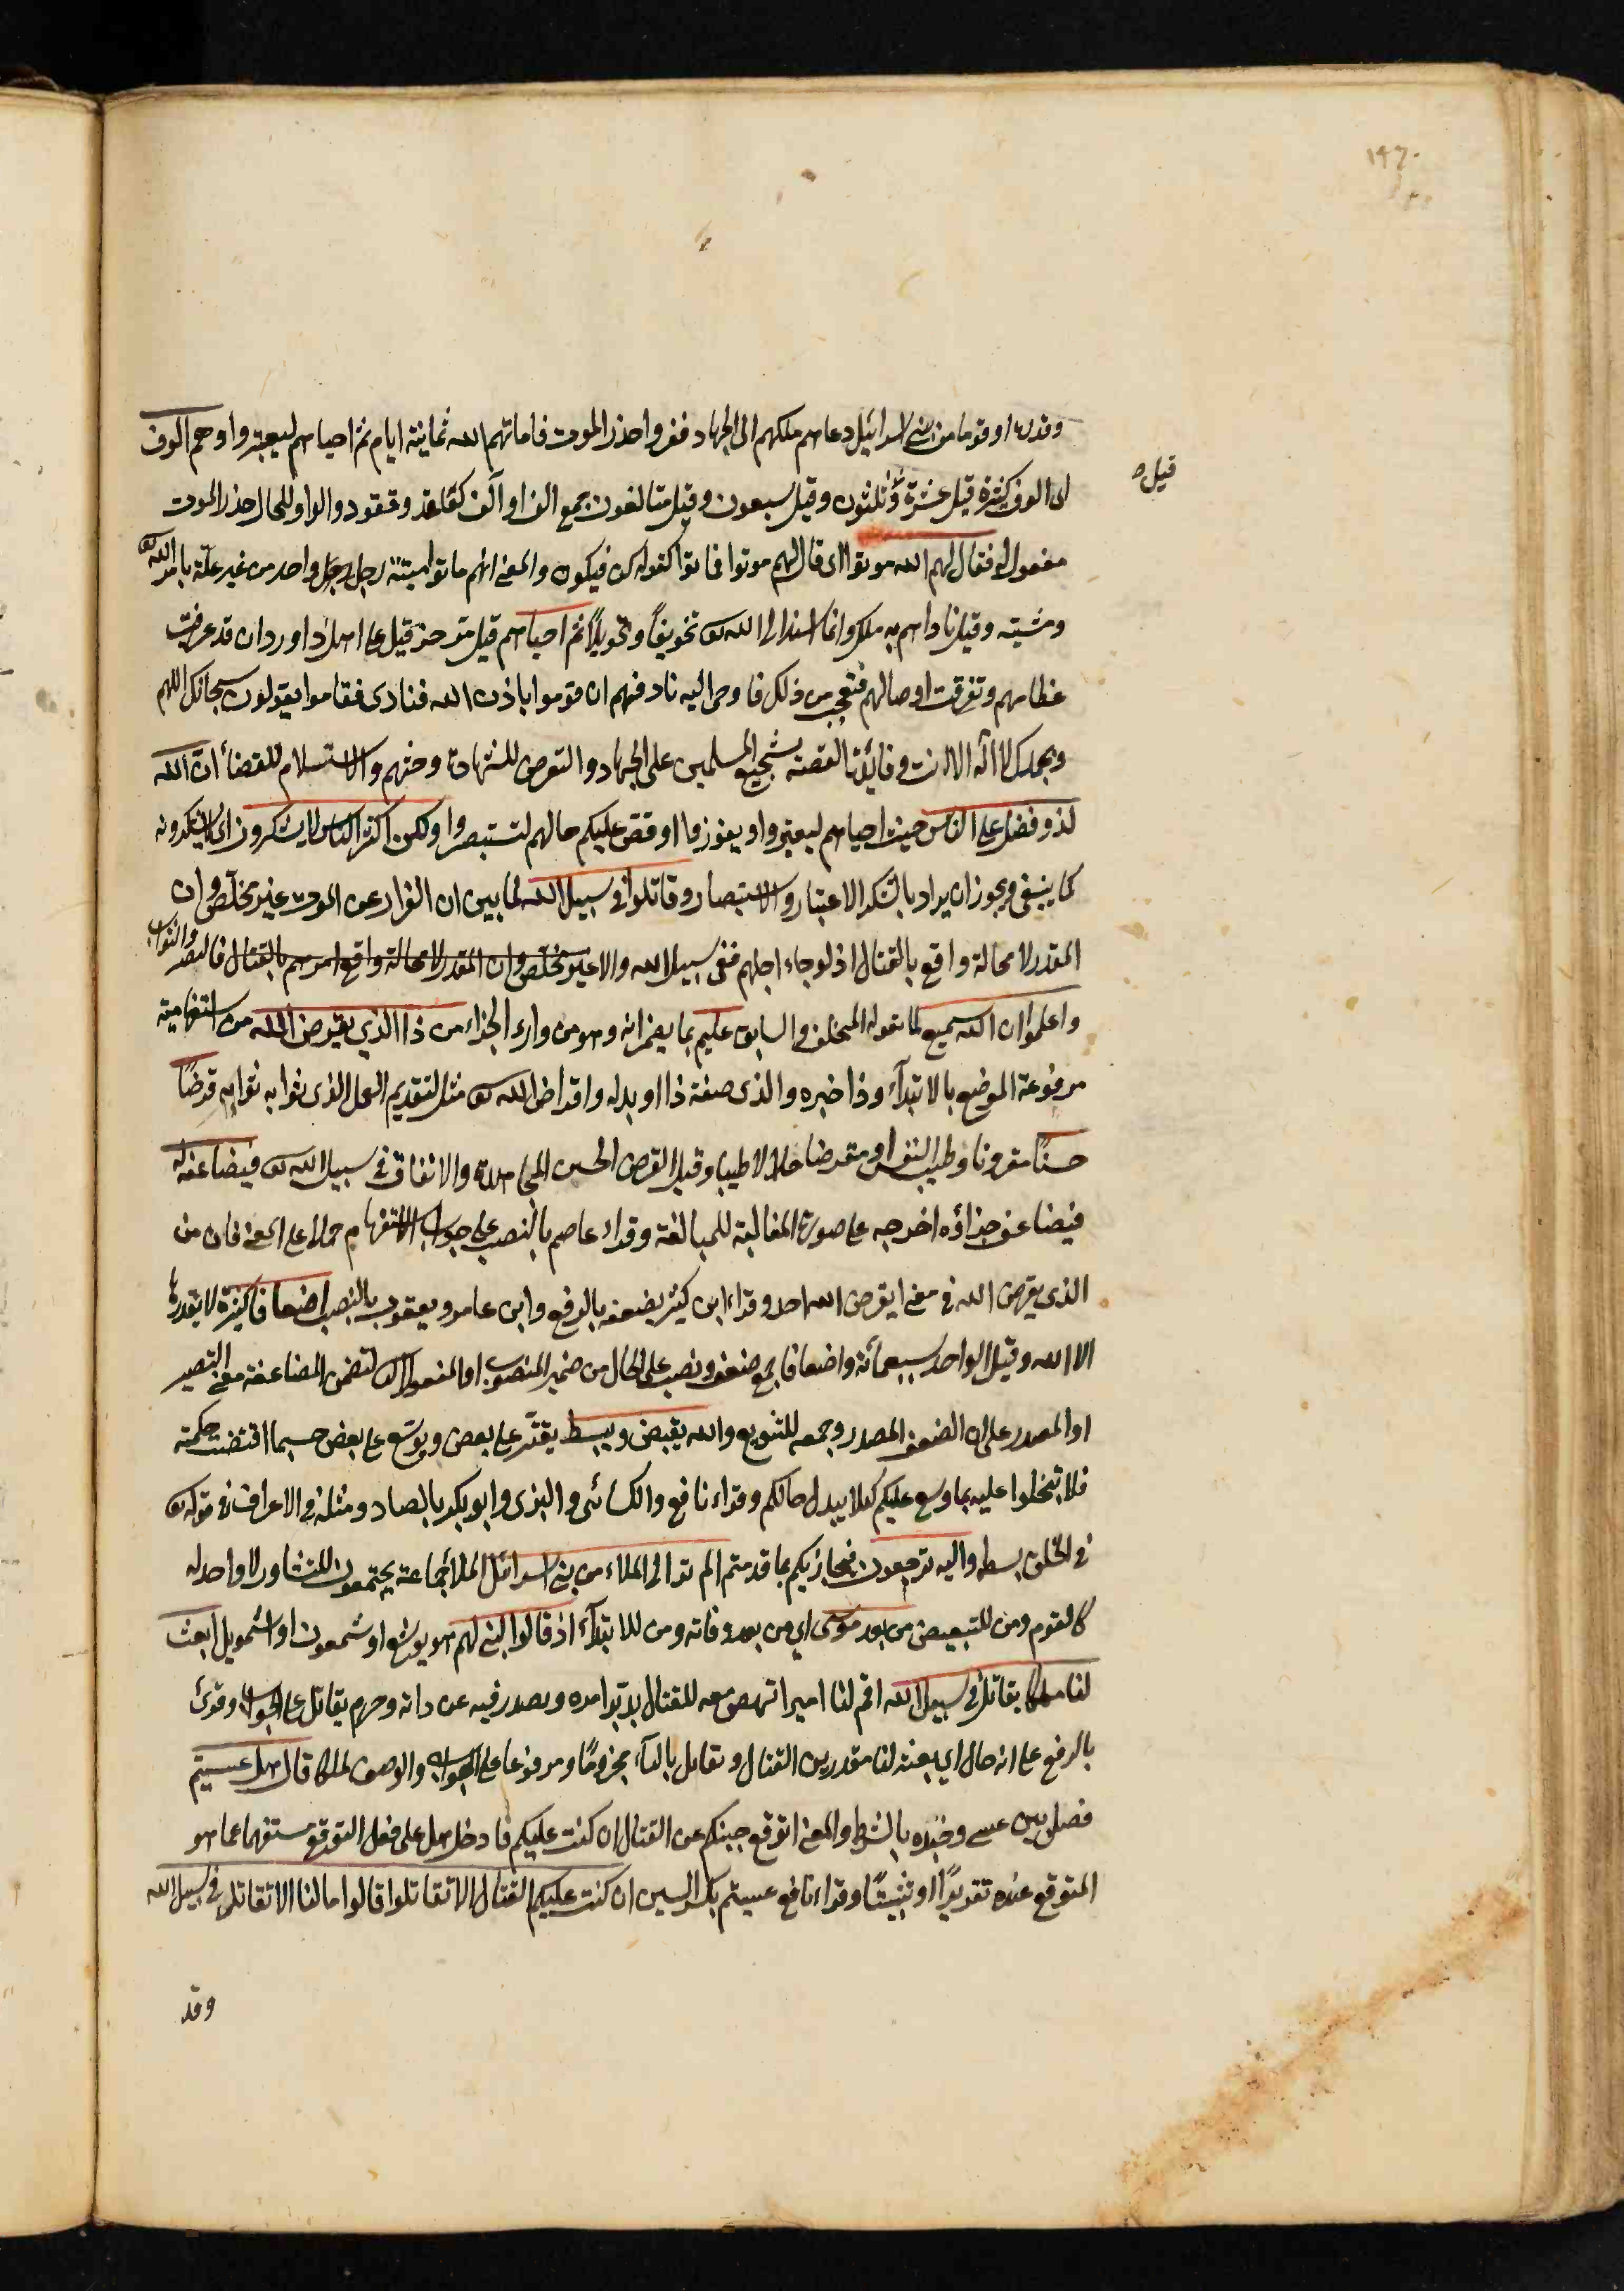 ١٤٦٠
وقدره او قوما من بنى اسرائيل دعاهم ملكهم الى الجهاد ففروا حذر الموت فاماتهم الله ثمانية ايام ثم احياهم ليعتبروا وهم الوف
قيل
اى الوف كثيرة قيل عشرة وثلثون وقيل سبعون وقيل متالفون جمع الف او آلف كقاعد وقعود والواو للحال حذر الموت
مفعول له فقال لهم الله موتوا اى قال لهم موتوا فماتوا كقوله كن فيكون والمعنى انهم ماتوا ميتة رجل واحد من غير علة بامر الله تع
ومشيته وقيل ناداهم به ملك وانما اسند الى الله تع تخويفا وتهويلا ثم احياهم قيل مر حزقيل على اهل داوردان قد عريت
عظامهم وتفرقت اوصالهم فتعجب من ذلك فاوحى اليه ناد فيهم ان قوموا باذن الله فنادى فقاموا يقولون سبحانك اللهم
وبحمدك لا اله الا انت وفائدة القصة تشجيع المسلمين على الجهاد والتعرض للشهادة وحثهم والاستسلام للقضاء ان الله
لذو فضل على الناس حيث احياهم ليعتبروا ويفوزوا او قص عليكم حالهم لتستبصروا ولكن اكثر الناس لا يشكرون اى لا يشكرونه
كما ينبغى ويجوز ان يراد بالشكر الاعتبار والاستبصار وقاتلوا فى سبيل الله لما بين ان الفرار عن الموت غير مخلص وان
المقدر لا محالة واقع بالقتال اذ لو جاء اجلهم ففى سبيل الله والا غير مخلص وان المقدر لا محالة واقع امرهم بالقتال فالنصر والثواب
واعلموا ان الله سميع لما يقوله المتخلف والسابق عليم بما يضمرانه وهو من وراء الجزاء من ذا الذى يقرض الله من استفهامية
مرفوعة الموضع بالابتداء وذا خبره والذى صفة ذا او بدله واقراض الله تع مثل لتقديم العمل الذى ثوابه ثوابه قرضا
حسنا مقرونا وطيب النفس او مقرضا حلالا طيبا وقيل القرض الحسن المجاهدة والانفاق فى سبيل الله تع فيضاعفه له
فيضاعف جزاؤه اخرجه على صورة المغالبة للمبالغة وقراء عاصم بالنصب على جواب الاستفهام حملا على المعنى فان من
الذى يقرض الله فى معنى ايقرض الله احد وقراء ابن كثير يضعفه بالرفع وابن عامر ويعقوب بالنصب اضعافا كثيرة لا يقدرها
الا الله وقيل الواحد بسبعمائة واضعافا جمع ضعف ونصب على الحال من ضمير المنصوب او المفعول الثانى لتضمن المضاعفة معنى التصيير
او المصدر على ان الضعف المصدر وجمعه للتنويع والله يقبض ويبسط يقتر على بعض ويوسع على بعض حسبما اقتضت حكمته
فلا تبخلوا عليه بما وسع عليكم كيلا يبدل حالكم وقراء نافع والكسائى والبزى وابو بكر بالصاد ومثله فى الاعراف فى قوله تع
فى الخلق بسطة واليه ترجعون فيجازيكم بما قدمتم الم تر الى الملاء من بنى اسرائيل الملأ جماعة يجتمعون للتشاور لا واحد له
كالقوم ومن للتبعيض من بعد موسى اى من بعد وفاته ومن للابتداء اذ قالوا لنبى لهم هو يوشع او شمعون او اشمويل ابعث
لنا ملكا يقاتل فى سبيل الله اقم لنا اميرا ننهض معه للقتال يدبر امره ونصدر فيه عن رايه وجزم يقاتل على الجواب وقرئ
بالرفع على انه حال اى ابعثه لنا مقدرين القتال ويقاتل بالياء مجزوما ومرفوعا على الجواب والوصف لملكا قال هل عسيتم
فصل بين عسى وخبره بالشرط والمعنى اتوقع جبنكم عن القتال ان كتب عليكم فادخل هل على فعل التوقع مستفهما عما هو
المتوقع عنده تقريرا او تثبيتا وقراء نافع عسيتم بكسر السين ان كتب عليكم القتال الا تقاتلوا قالوا ما لنا الا نقاتل فى سبيل الله
وقد